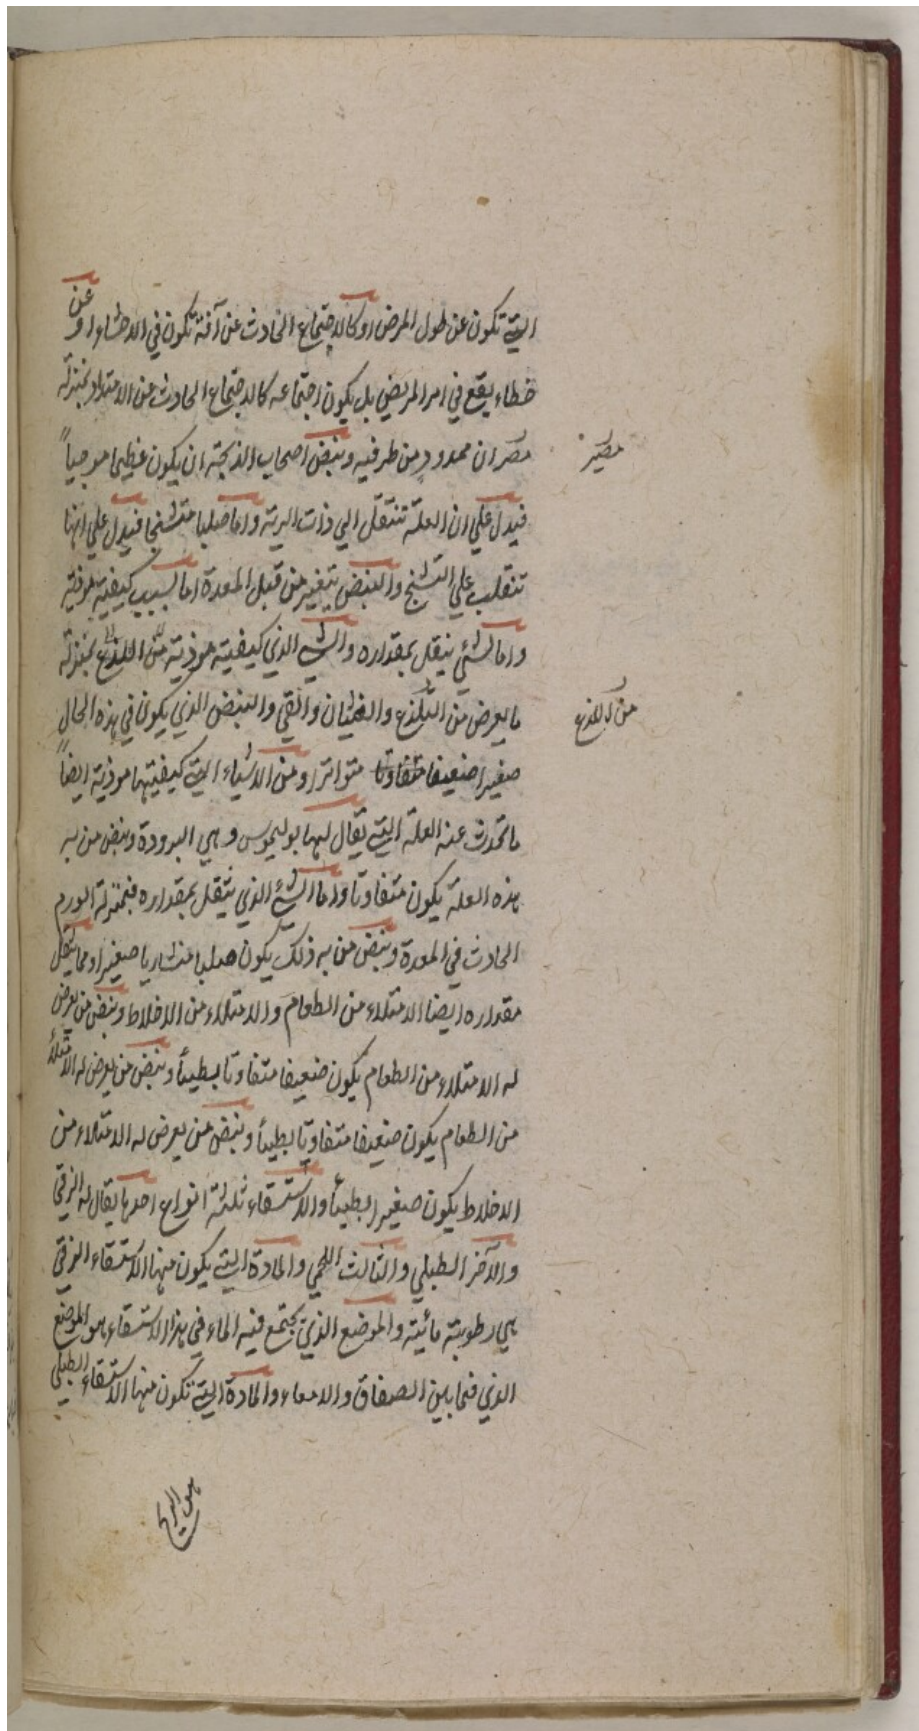 التي تكون عن طول المرض او كالاجتماع الحادث عن آفة تكون في الاحشاء او عن
خطاء يقع في امر المريض بل يكون اجتماعه كالاجتماع الحادث عن الامتداد بمنزلة
مصران ممدود من طرفيه ونبض اصحاب الذبحة ان يكون عظيما موجياً
مصير
فيدل علي ان العلة تنتقل الي ذات الرية واما صلبا متشنجا فيدل علي انها
تنقلب علي التشنج والنبض يتغير من قبل المعدة اما لسبب كيفية موذية
واما لشئ يثقل بمقداره والشئ الذي كيفيته موذية من اللذع بمنزلة
ما يعرض من التلذع والغثيان والقي والنبض الذي يكون في هذه الحال
من اللذع
صغيرا ضعيفا متفاوتا متواترا ومن الاشياء التي كيفيتها موذية ايضاً
ما تحدث عنه العلة التي يقال لها بوليموس وهي البرودة ونبض من به
هذه العلة يكون متفاوتا واما الشئ الذي يثقل بمقداره فبمنزلة الورم
الحادث في المعدة ونبض من به ذلك يكون صلبا منشاريا صغيرا ومما يثقل
مقداره ايضا الامتلاء من الطعام والامتلاء من الاخلاط ونبض من يعرض
له الامتلاء من الطعام يكون ضعيفا متفاوتا بطيئاً ونبض من يعرض له الامتلاء
من الطعام يكون ضعيفا متفاوتا بطيئاً ونبض من يعرض له الامتلاء من
الاخلاط يكون صغيرا بطيئاً والاستسقاء ثلثة انواع احدها يقال له الزقي
والآخر الطبلي والثالث اللحمي والمادة التي يكون منها الاستسقاء الزقي
هي رطوبته مائية والموضع الذي يجتمع فيه الماء في هذا الاستسقاء هو الموضع
الذي فيما بين الصفاق والامعاء والمادة التي تكون منها الاستسقاء الطبلي
هو الريح